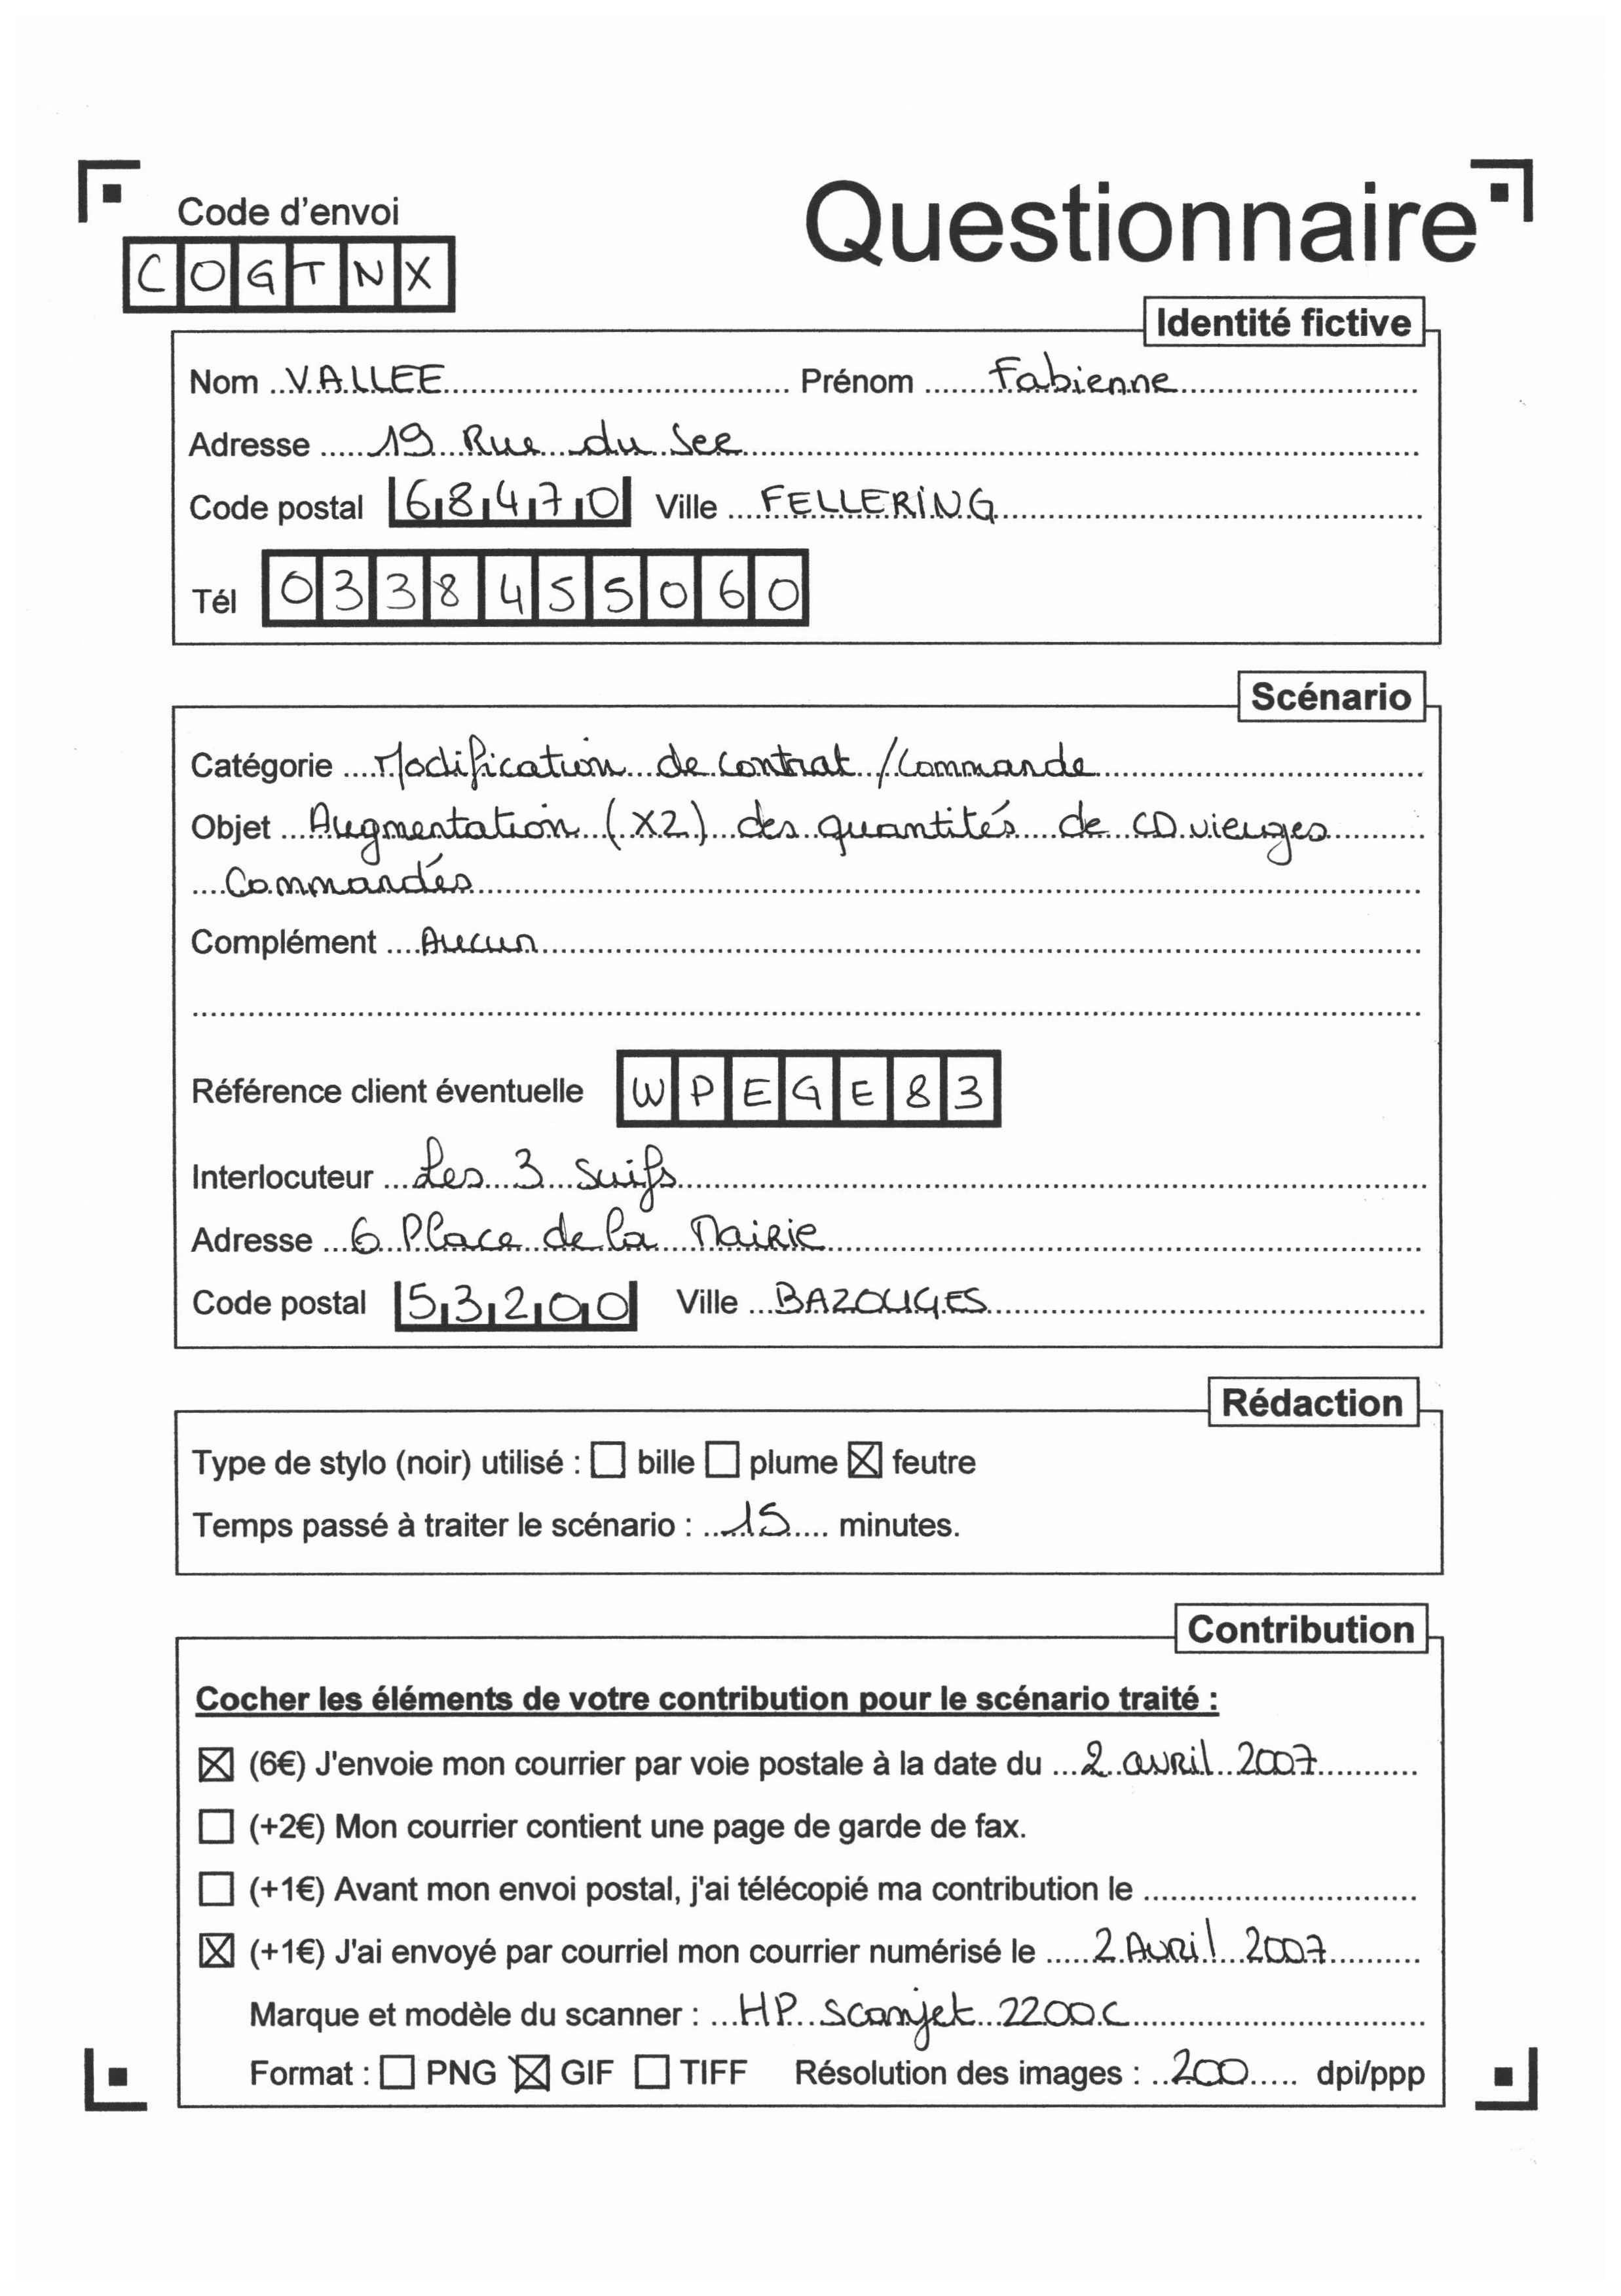 Code d'envoi
Questionnaire
COGTNX
Identité fictive
Nom VALLEE Prénom Fabienne
Adresse 19 Rue du See
Code postal 68470 Ville FELLERING
Tél 0338455060
Scénario
Catégorie Modification de contrat / Commande
Objet Augmentation (X2) des quantités de CD vierges
Commandés
Complément Aucun
Référence client éventuelle WPEGE83
Interlocuteur Les 3 suifs
Adresse 6 Place de la Mairie
Code postal 53200 Ville BAZOUGES
Rédaction
Type de stylo (noir) utilisé : ☐ bille ☐ plume ☒ feutre
Temps passé à traiter le scénario : 15 minutes.
Contribution
Cocher les éléments de votre contribution pour le scénario traité :
☒ (6€) J'envoie mon courrier par voie postale à la date du 2 avril 2007
☐ (+2€) Mon courrier contient une page de garde de fax.
☐ (+1€) Avant mon envoi postal, j'ai télécopié ma contribution le
☒ (+1€) J'ai envoyé par courriel mon courrier numérisé le 2 Avril 2007
Marque et modèle du scanner : HP Scanjet 2200C
Format : ☐ PNG ☒ GIF ☐ TIFF Résolution des images : 200 dpi/ppp